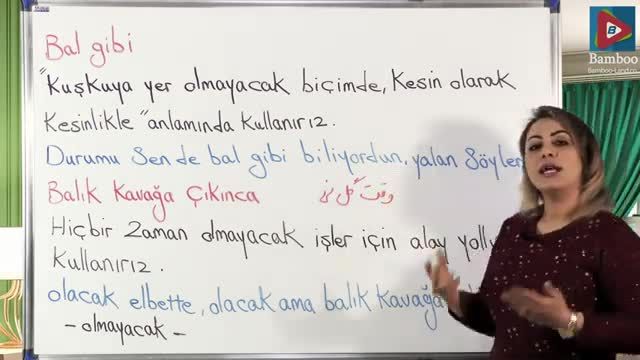 Bal gibi
"Kuşkuya yer olmayacak biçimde, Kesin olarak
Kesinlikle" anlamında Kullanırız.
Durumu Sen de bal gibi biliyordun, yalan Söyle
Balık Kavağa Çıkınca وقت گل نی
Hiçbir Zaman olmayacak işler için alay yollu
Kullanırız.
olacak elbette, olacak ama balık Kavağa
- olmayacak -
B
Bamboo
Bamboo-Land.co